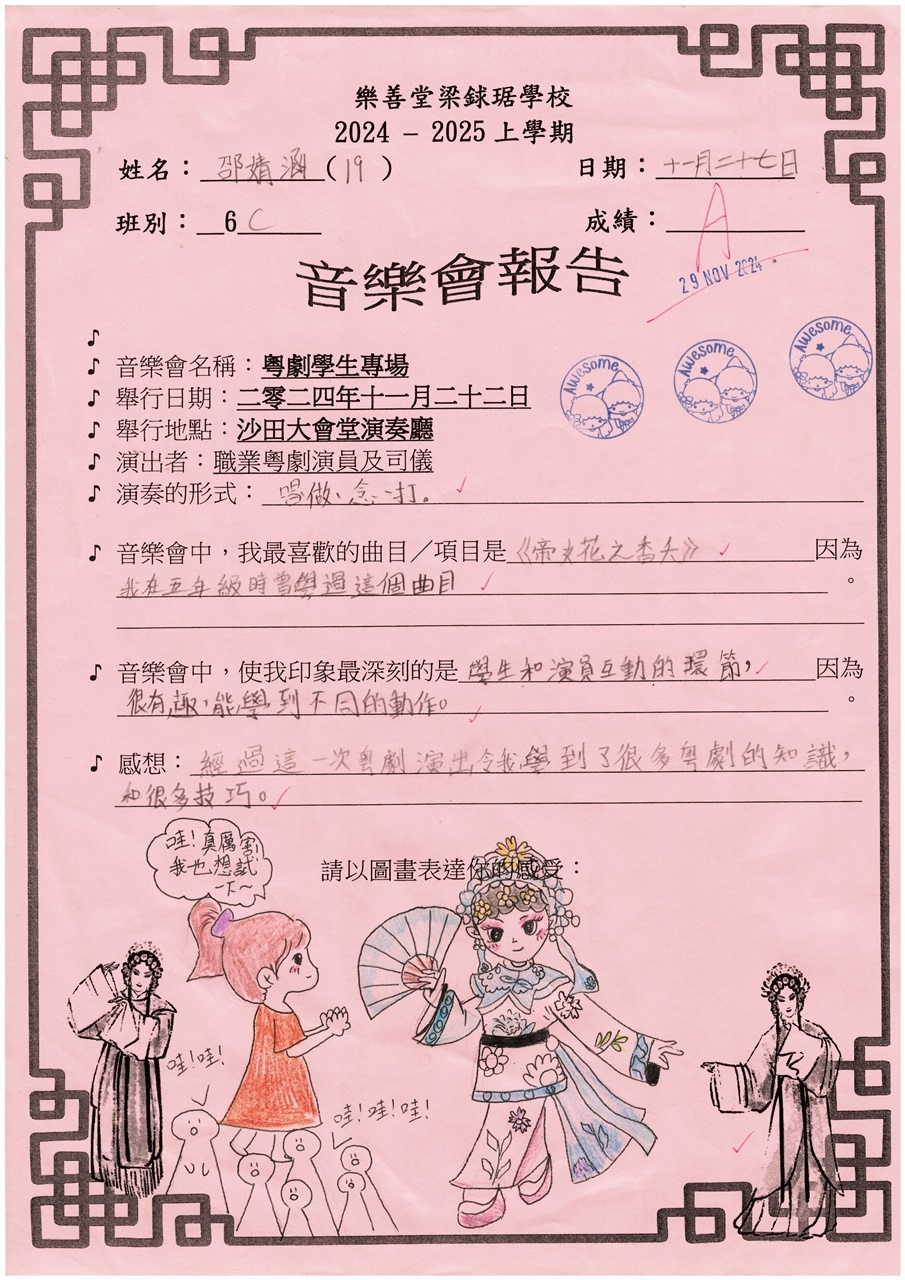 樂善堂梁銶琚學校
2024 – 2025 上學期
姓名： 邵婧涵 ( 19 ) 日期： 十一月二十七日
班別： 6 C 成績： A
29 NOV 2024
音樂會報告
♪
♪ 音樂會名稱：粵劇學生專場
♪ 舉行日期：二零二四年十一月二十二日
♪ 舉行地點：沙田大會堂演奏廳
♪ 演出者：職業粵劇演員及司儀
♪ 演奏的形式： 唱、做、念、打。
Awesome
Awesome
Awesome
♪ 音樂會中，我最喜歡的曲目／項目是《帝女花之香夭》 因為
我在五年級時曾學過這個曲目 。
♪ 音樂會中，使我印象最深刻的是 學生和演員互動的環節， 因為
很有趣，能學到不同的動作。 。
♪ 感想： 經過這一次粵劇演出令我學到了很多粵劇的知識，
和很多技巧。
請以圖畫表達你的感受：
哇！真厲害！
我也想試
一下～
哇！哇！
哇！哇！哇！